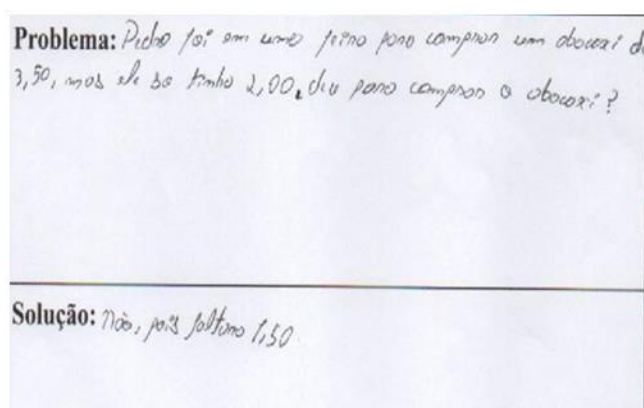 Problema: Pedro foi em uma feira para comprar um abacaxi d
3,50, mas ele so tinha 2,00, deu para comprar o abacaxi?
Solução: Não, pois faltava 1,50